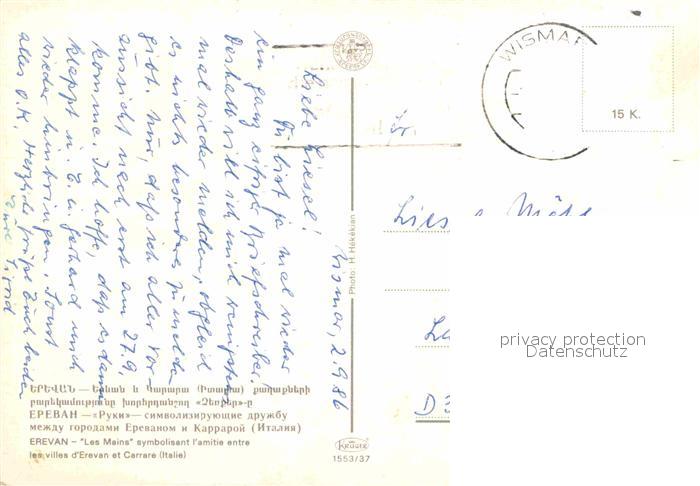 Wismar, 2.9.86
Liebe Liesel!
Du bist ja mal wieder
ein ganz eifriger Briefschreiber!
Deshalb will ich mich wenigstens
mal wieder melden, obgleich
es nichts besonderes zu melden
gibt. Nur, daß ich aller Vor-
aussicht nach erst am 27.9.
komme. Ich hoffe, daß es dann
klappt u. E. u. Gerhard mich
wieder hinbringen. Sonst
alles O.K. Herzliche Grüße Euch beiden
Eure
WISMAR
15 K.
Photo: H. Hékékian
ԵՐԵՎԱՆ — Երևան և Կարարա (Իտալիա) քաղաքների
բարեկամությանը խորհրդանշող «Ձեռքեր»-ը
ЕРЕВАН — «Руки» — символизирующие дружбу
между городами Ереваном и Каррарой (Италия)
EREVAN – "Les Mains" symbolisant l'amitie entre
les villes d'Erevan et Carrare (Italie)
KRÜGER
1553/37
privacy protection
Datenschutz